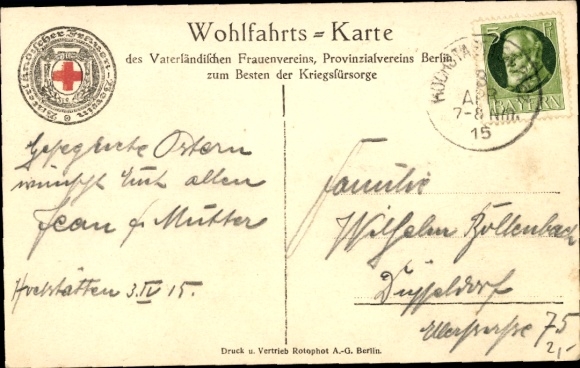 Wohlfahrts = Karte
des Vaterländischen Frauenvereins, Provinzialvereins Berlin
zum Besten der Kriegsfürsorge
Vaterländischer Frauen-Verein
5
BAYERN
HOCHSTA
AP
7-8 Nm.
15
Gesegnete Ostern
wünscht Euch allen
Jean u Mutter
Hochstätten 3.IV 15.
Familie
Wilhelm Bollenbach
Düsseldorf
75
2,-
Druck u. Vertrieb Rotophot A.-G. Berlin.